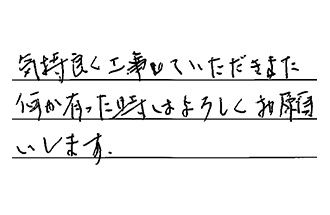 気持良く工事していただきまた
何か有った時はよろしくお願
いします.